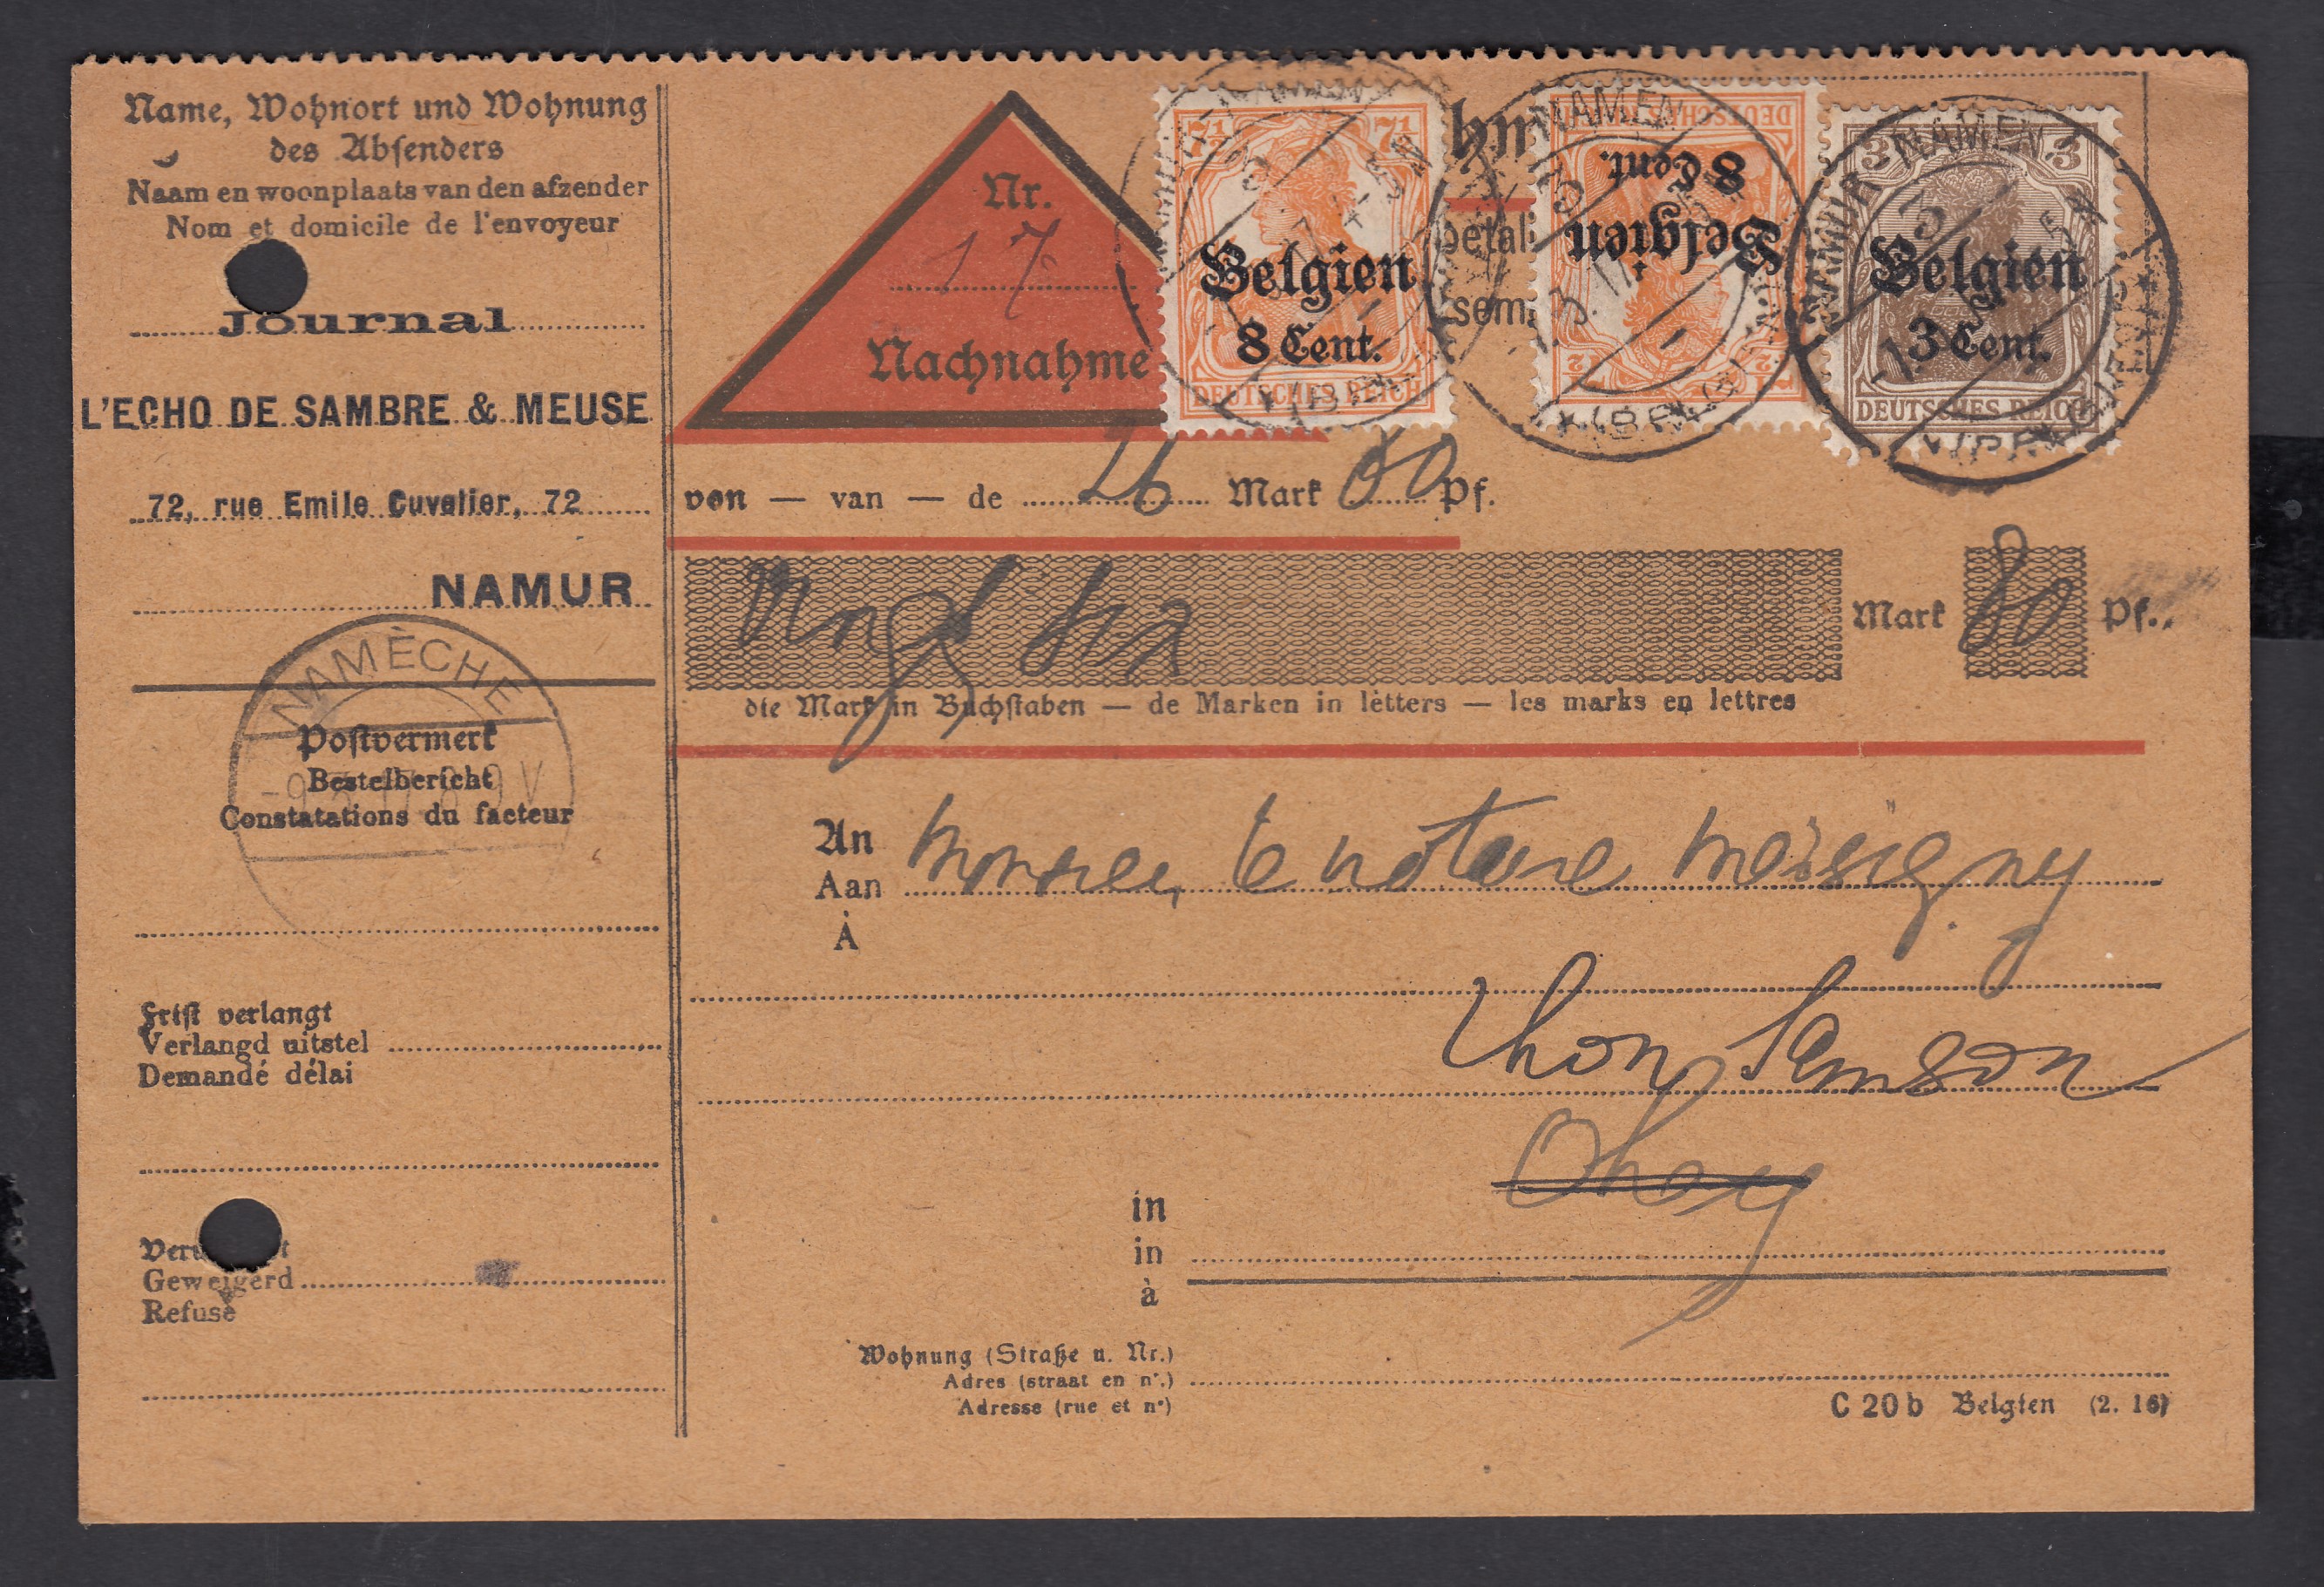 Name, Wohnort und Wohnung
des Absenders
Naam en woonplaats van den afzender
Nom et domicile de l'envoyeur
Journal
L'ECHO DE SAMBRE & MEUSE
72, rue Emile Cuvelier, 72
NAMUR
NAMÈCHE
Postvermerk
Bestelbericht
Constatations du facteur
Frist verlangt
Verlangd uitstel
Demandé délai
Geweigerd
Refusé
Nr.
17
Nachnahme
7½ 7½
Belgien
8 Cent.
DEUTSCHES REICH
Belgien
8 Cent.
DEUTSCHES
NAMEN
3 3
Belgien
3 Cent.
DEUTSCHES REICH
NAMUR NAMEN
von — van — de 26 Mark 80 Pf.
Vingt six Mark 80 Pf.
die Mark in Buchstaben — de Marken in letters — les marks en lettres
An
Aan
À
Monsieur le notaire
Thon Samson
Ohey
in
in
à
Wohnung (Straße u. Nr.)
Adres (straat en nr.)
Adresse (rue et n°)
C 20 b Belgien (2. 16)